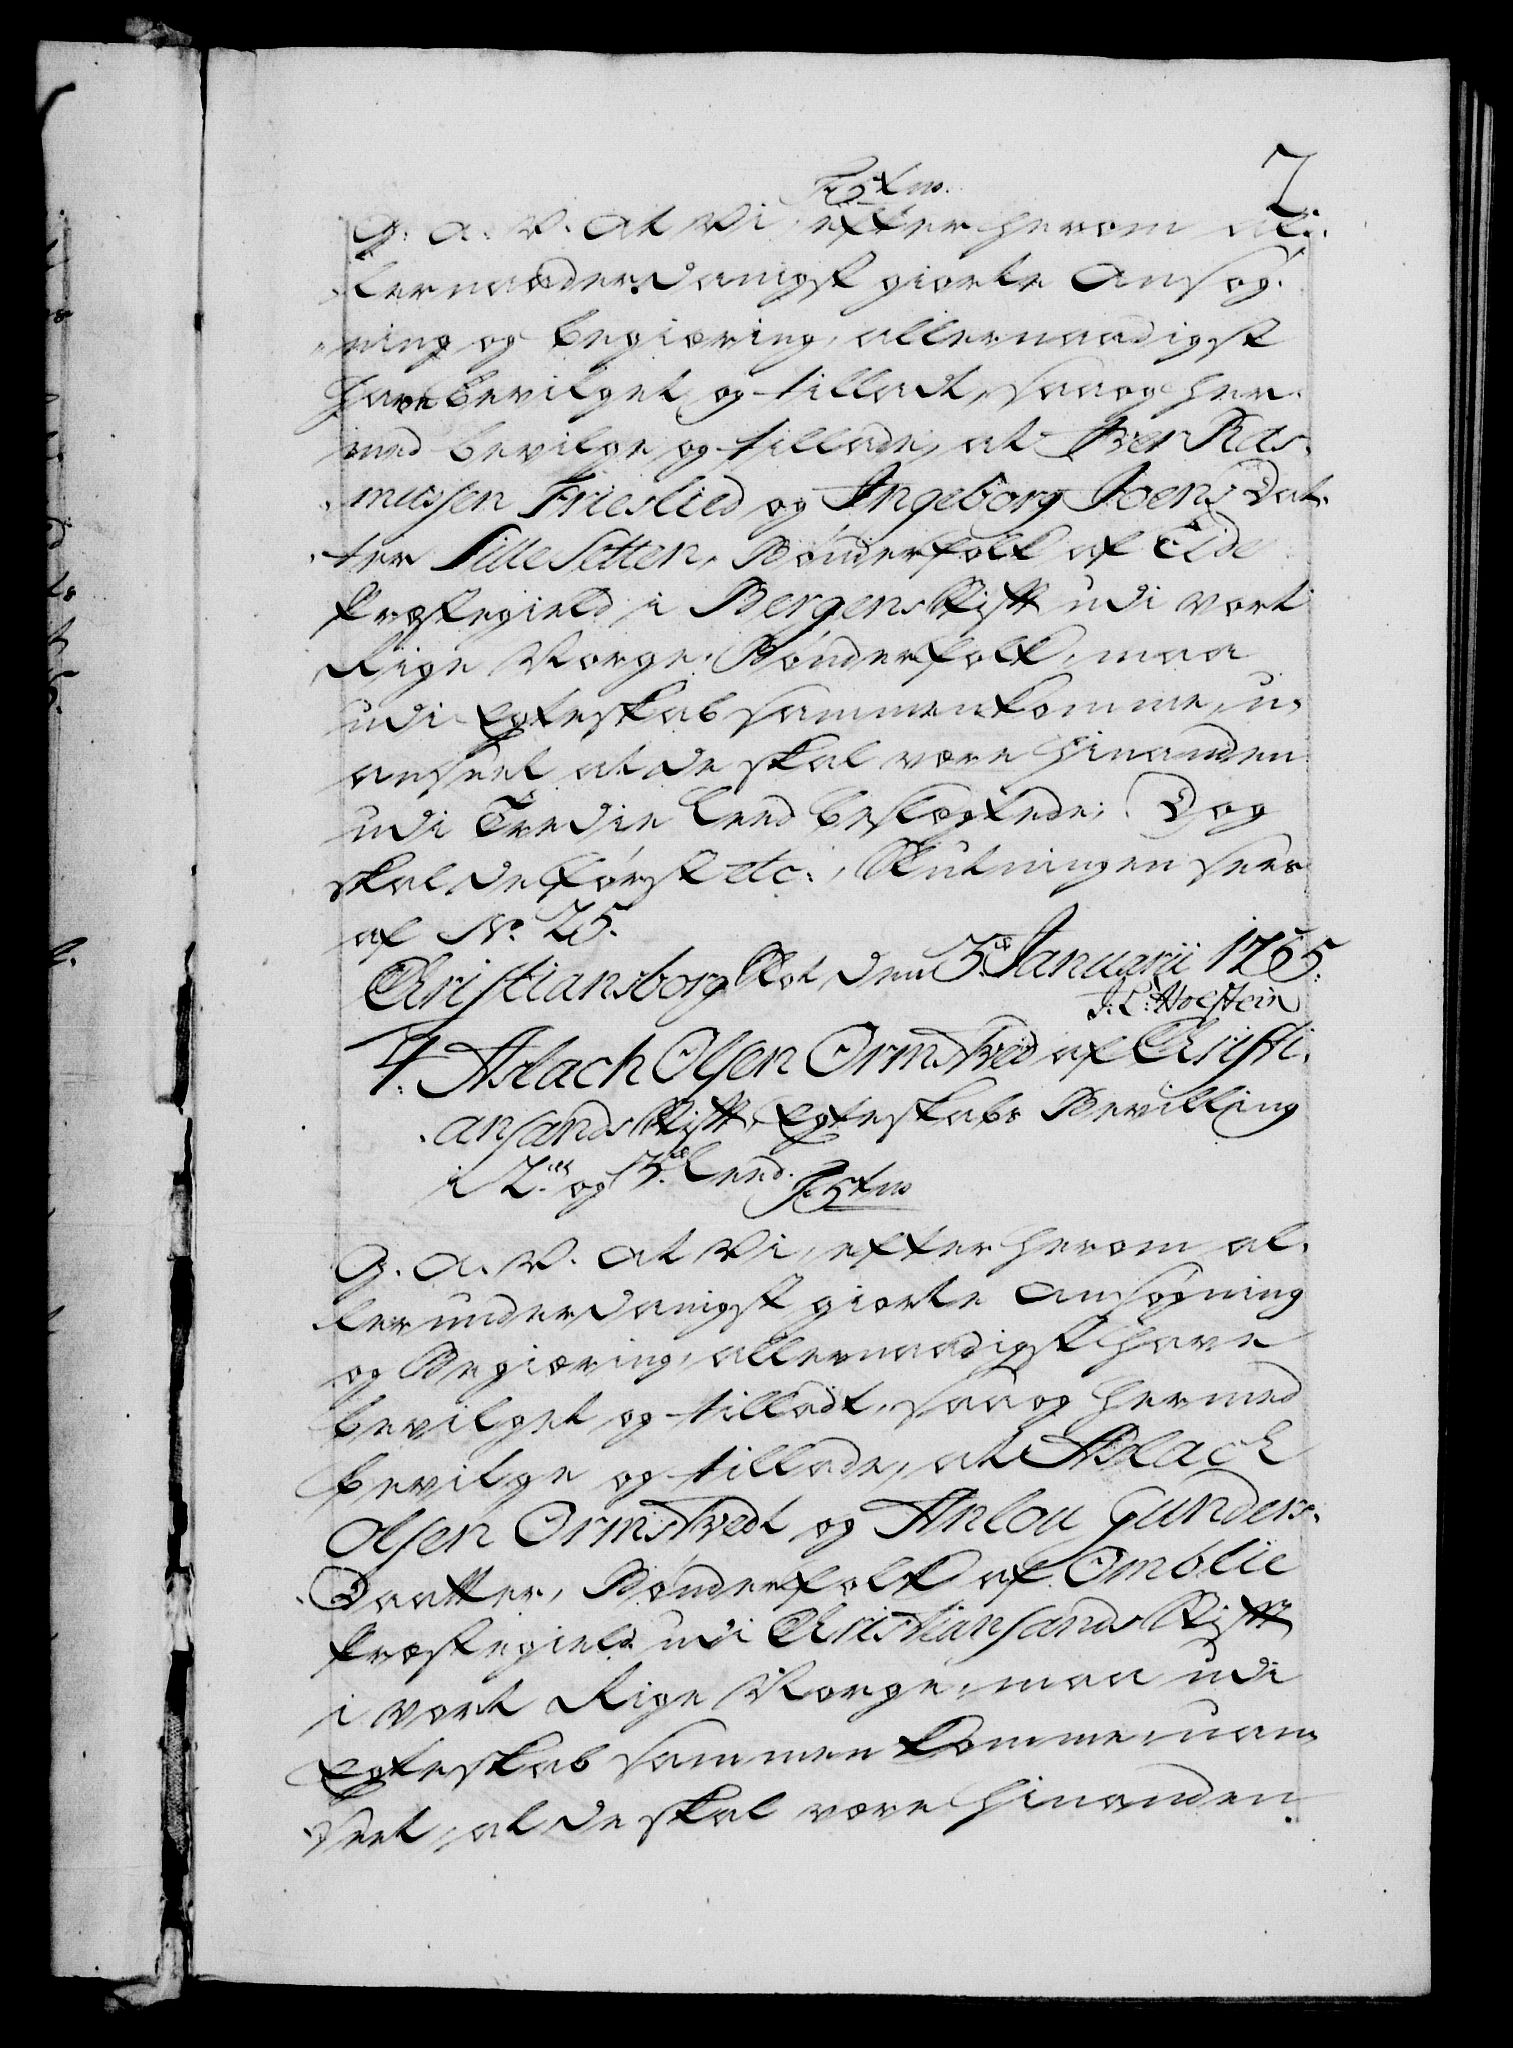 7
F 5tus.
G. A. V. at Vi, efter herom al-
lerunderdanigst giorte Ansøg-
ning og begiæring, allernaadigst
have bevilget og tilladt, saa og her-
med bevilge og tillade, at Iver Ras-
mussen Frieslied og Ingeborg Joens Dat-
ter Sille Setten, Bønderfolk af Eide
Præstegield i Bergens Stift udi vort
Rige Norge Bønderfolk, maa
udi Egteskab sammenkomme, u-
anseet at de skal være hinanden
udi Tredie Leed beslægtede; Dog
skal de først etc:, Slutningen sees
af No. 25.
Christiansborg Slot, den 3die Januarii 1765.
J. L. Holstein
4. Aslach Olsen Ormstved af Christi-
ansands Stift, Egteskabs Bevilling
i 2det og 3die Leed.
F 5tus
G. A. V. at Vi, efter herom al-
lerunderdanigst giorte Ansøgning
og Begiæring, allernaadigst have
bevilget og tilladt, saa og hermed
bevilge og tillade, at Aslach
Olsen Ormstvedt og Anlou Gunders-
Daatter, Bønderfolk af Omblie
Præstegield udi Christiansands Stift
i vort Rige Norge, maa udi
Egteskab sammenkomme, uan-
seet, at de skal være hinanden